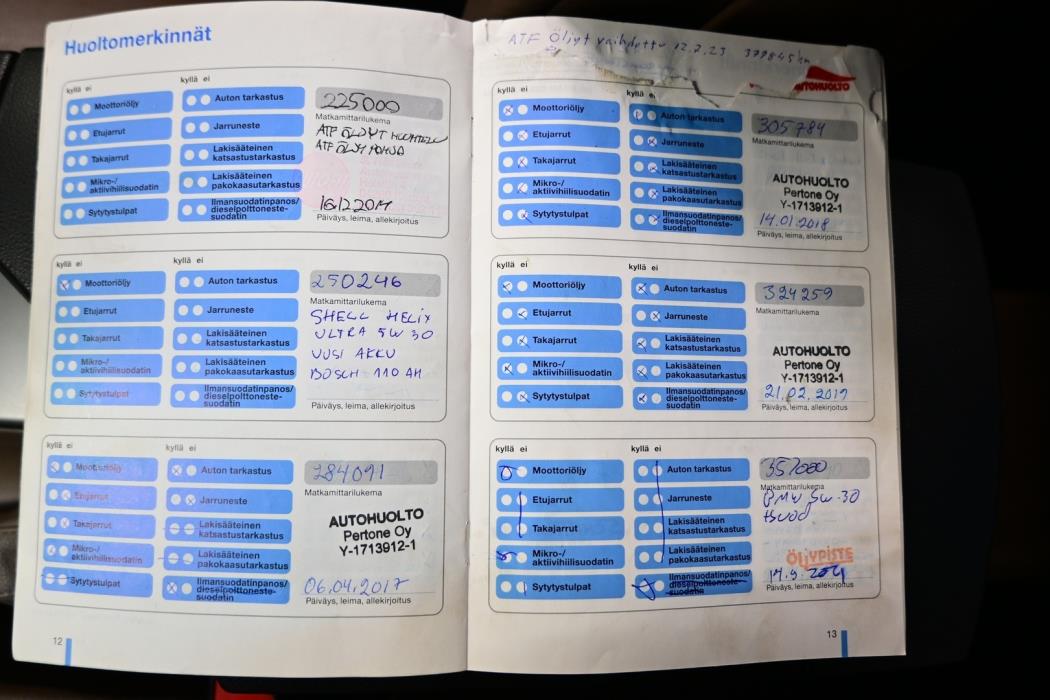 Huoltomerkinnät
kyllä ei
kyllä ei
Moottoriöljy
Auton tarkastus
225000
Matkamittarilukema
Etujarrut
Jarruneste
ATF ÖLJYT
ATF ÖLJY
Takajarrut
Lakisääteinen
katsastustarkastus
Mikro-/
aktiivihiilisuodatin
Lakisääteinen
pakokaasutarkastus
Sytytystulpat
Ilmansuodatinpanos/
dieselpolttoneste-
suodatin
Päiväys, leima, allekirjoitus
kyllä ei
kyllä ei
Moottoriöljy
Auton tarkastus
250246
Matkamittarilukema
Etujarrut
Jarruneste
SHELL HELIX
ULTRA 5W 30
Takajarrut
Lakisääteinen
katsastustarkastus
UUSI AKKU
Mikro-/
aktiivihiilisuodatin
Lakisääteinen
pakokaasutarkastus
BOSCH 110 AH
Sytytystulpat
Ilmansuodatinpanos/
dieselpolttoneste-
suodatin
Päiväys, leima, allekirjoitus
kyllä ei
kyllä ei
Moottoriöljy
Auton tarkastus
284091
Matkamittarilukema
Etujarrut
Jarruneste
Takajarrut
Lakisääteinen
katsastustarkastus
AUTOHUOLTO
Pertone Oy
Y-1713912-1
Mikro-/
aktiivihiilisuodatin
Lakisääteinen
pakokaasutarkastus
Sytytystulpat
Ilmansuodatinpanos/
dieselpolttoneste-
suodatin
06.04.2017
Päiväys, leima, allekirjoitus
12
ATF Öljyt vaihdettu 12.7.23 377845km
AUTOHUOLTO
kyllä ei
Moottoriöljy
Auton tarkastus
305784
Matkamittarilukema
Etujarrut
Jarruneste
Takajarrut
Lakisääteinen
katsastustarkastus
AUTOHUOLTO
Pertone Oy
Y-1713912-1
Mikro-/
aktiivihiilisuodatin
Lakisääteinen
pakokaasutarkastus
Sytytystulpat
Ilmansuodatinpanos/
dieselpolttoneste-
suodatin
14.01.2018
Päiväys, leima, allekirjoitus
kyllä ei
kyllä ei
Moottoriöljy
Auton tarkastus
324259
Matkamittarilukema
Etujarrut
Jarruneste
Takajarrut
Lakisääteinen
katsastustarkastus
AUTOHUOLTO
Pertone Oy
Y-1713912-1
Mikro-/
aktiivihiilisuodatin
Lakisääteinen
pakokaasutarkastus
Sytytystulpat
Ilmansuodatinpanos/
dieselpolttoneste-
suodatin
21.02.2019
Päiväys, leima, allekirjoitus
kyllä ei
kyllä ei
Moottoriöljy
Auton tarkastus
357000
Matkamittarilukema
Etujarrut
Jarruneste
BMW 5W-30
Takajarrut
Lakisääteinen
katsastustarkastus
Mikro-/
aktiivihiilisuodatin
Lakisääteinen
pakokaasutarkastus
ÖLJYPISTE
Sytytystulpat
Ilmansuodatinpanos/
dieselpolttoneste-
suodatin
Päiväys, leima, allekirjoitus
13